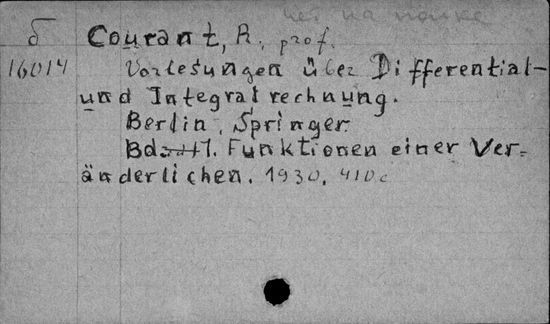 нет на полке
б Courant, R. prof.
16014 Vorlesungen über Differential-
und Integralrechnung.
Berlin, Springer.
Bd. 1. Funktionen einer Ver-
änderlichen. 1930. 410 c